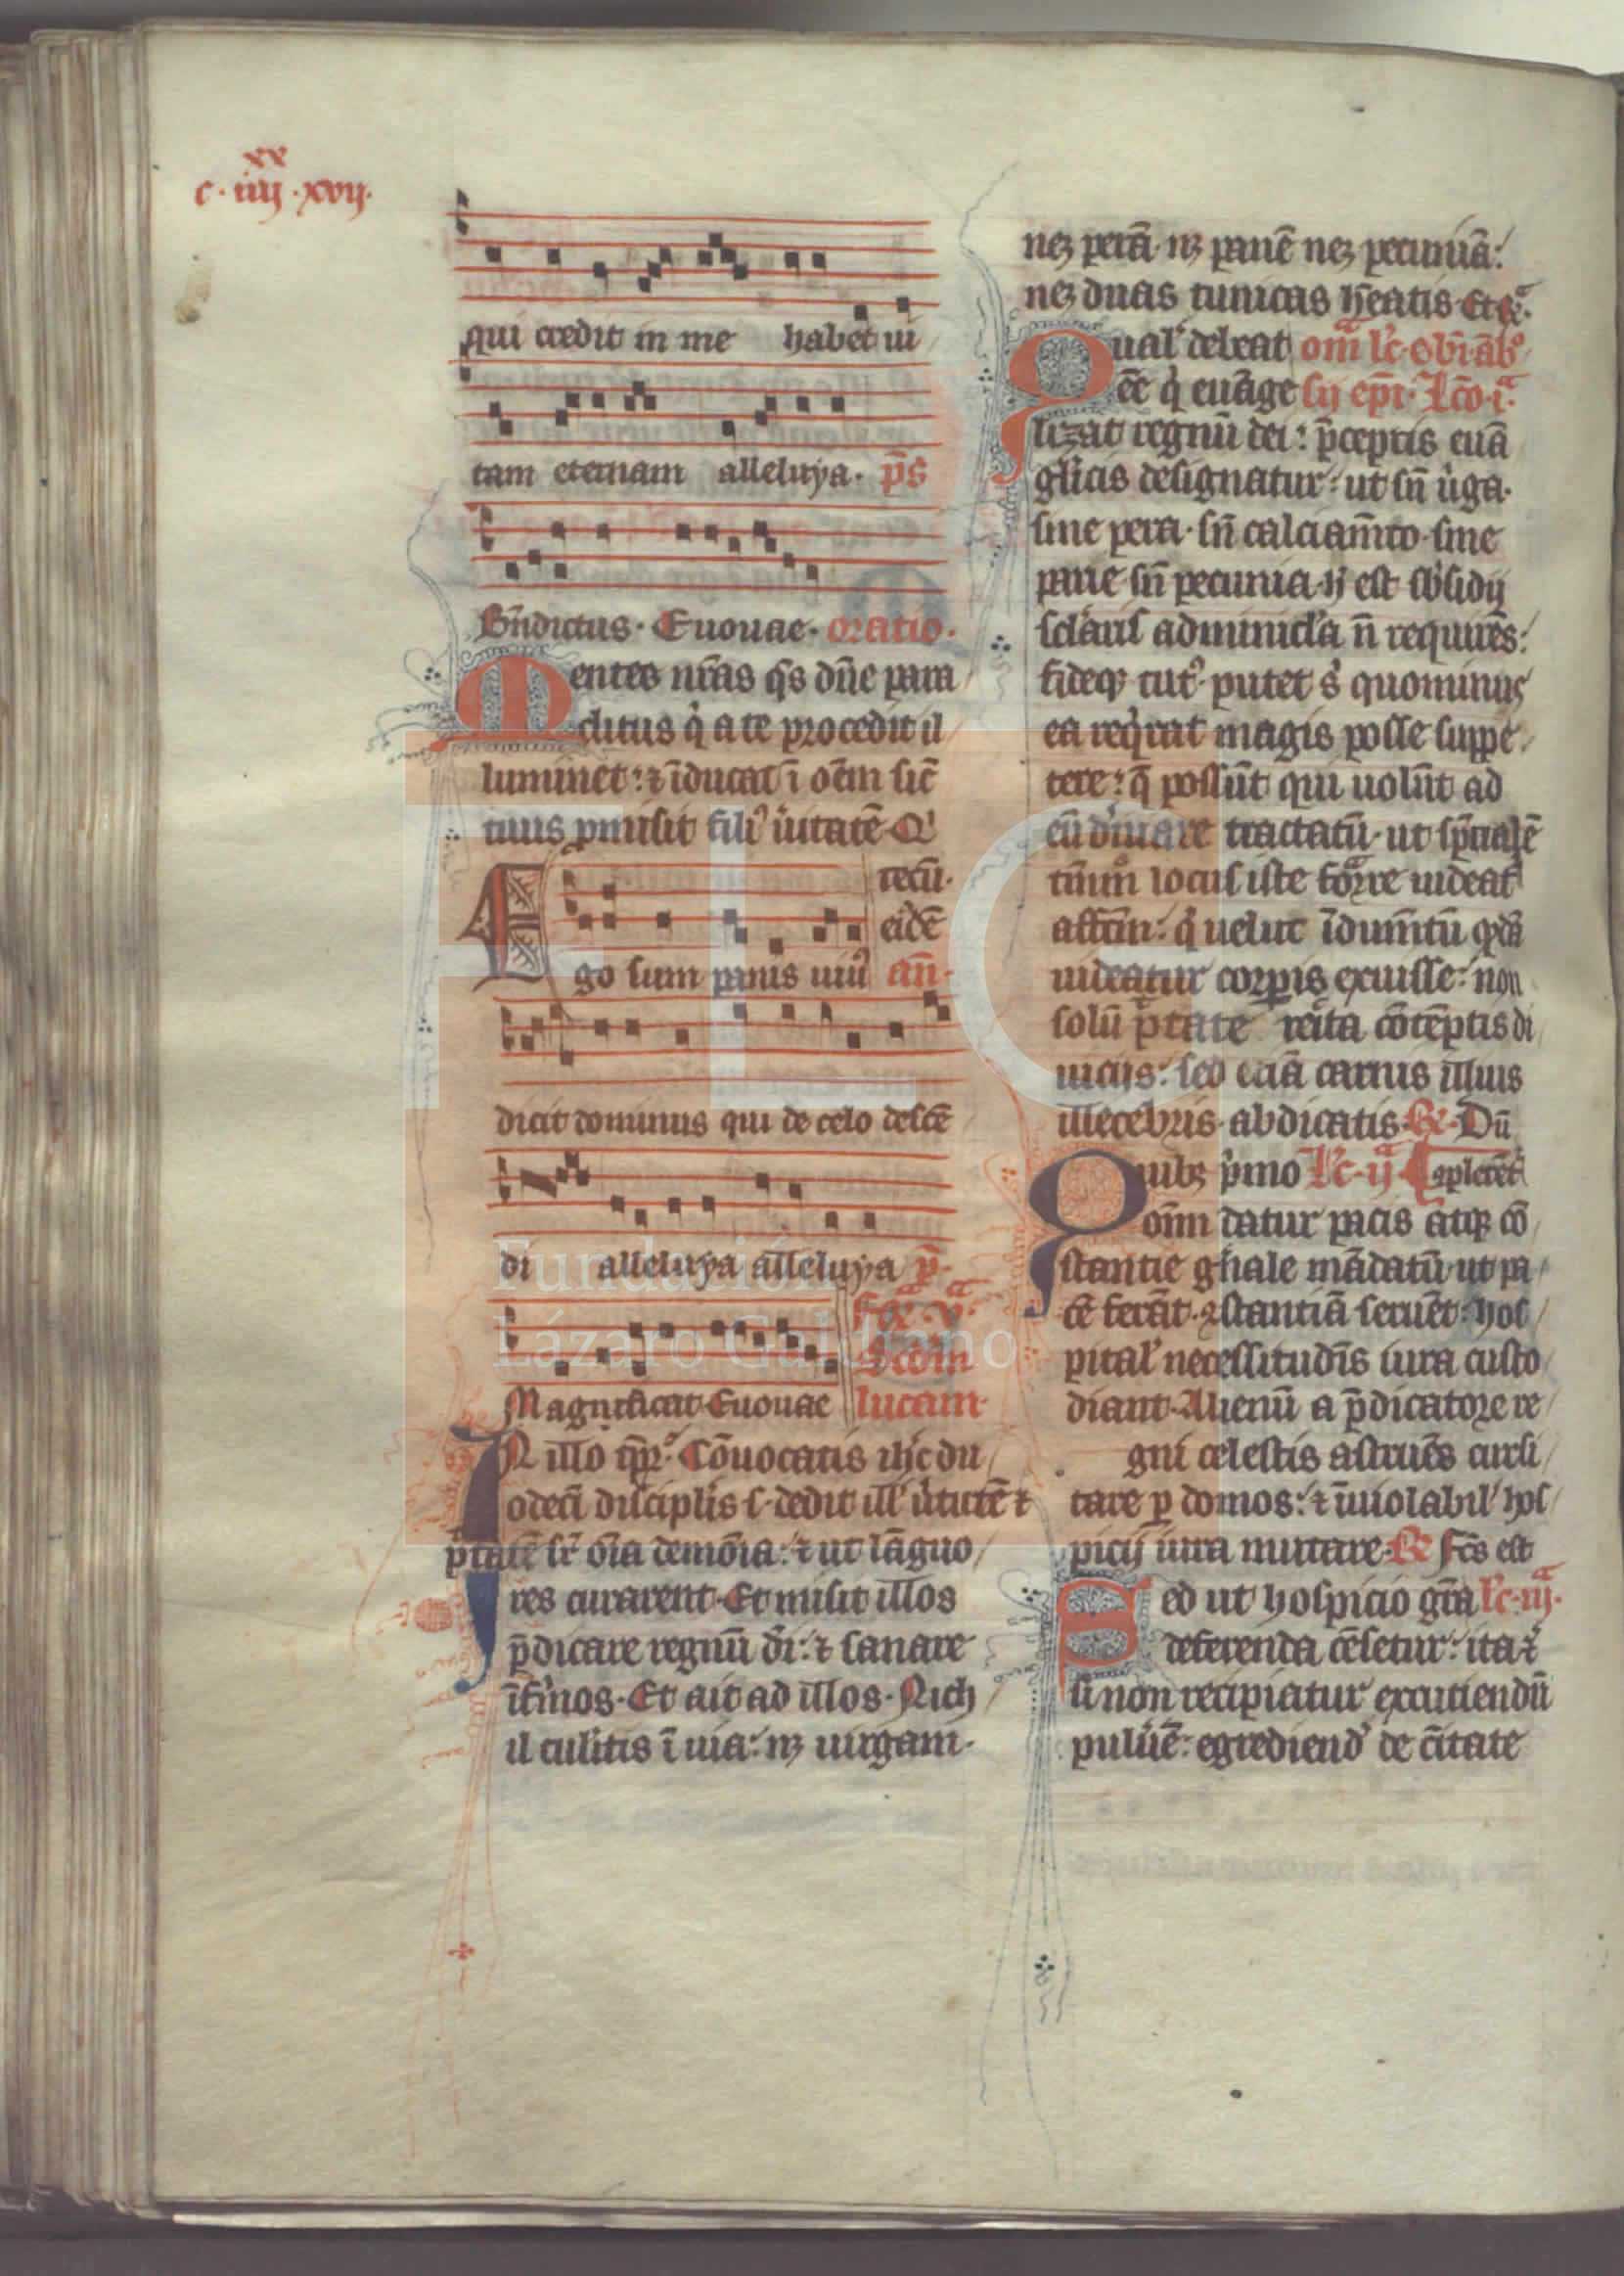 xx
c · iiij · xvij.
qui credit in me habet ui
tam eternam alleluya. p̄s
Bn̄dictus. Euouae. oratio.
Mentes nr̄as q̄s dn̄e para
clitus q̇ a te procedit il
luminet: ⁊ īducat ī oēm sic̄
tuus p̄misit fili᷒ u̇itatē. Q
recū.
eidē
Ego sum panis uiu᷒ an̄.
dicit dominus qui de celo descē
di alleluya alleluya p̄.
fer̄. v.ᵃ
Scdm
Magnificat Euouae lucam.
IN illo tp̄r. Cōuocatis ih̄c du
odecī disciplis s. dedit ill' u̇tutē ⁊
p̄tatē sr̄ oīa demōia: ⁊ ut lāguo
res curarent. Et misit illos
p̄dicare regnū dī: ⁊ sanare
īfi̇mos. Et ait ad illos. Nich
il tulitis ī uia: nꝫ uirgam.
neꝫ perā. nꝫ panē neꝫ pecuniā:
neꝫ duas tunicas h̄eatis. Et r̄.ᵃ
Qual' debeat om̄ lc̄. obi āb᷒
ēē q̇ euāge lij ep̄i. Lc̄o. i.ᵃ
lizat regnū dei: p̄ceptis euā
gl̄icis designatur: ut sn̄ u̇ga.
sine pera. sn̄ calciam̄to. sine
pane sn̄ pecunia. h̄ est sb̄sidij
sclāris adminicl'a n̄ requirēs:
fideqꝫ tut᷒. putet s᷒ quominus
ea req̇rat magis posse suppe
tere: q̄ possūt qui uolūt ad
eū diuare tractatū. ut sp̄cialē
locus iste forᵃre uideat᷒
affc̄m: q̇ uelut īdum̄tū qᵒdā
uideatur corp̄is exuisse: non
solū p̄tate reīta cōtēptis di
uicijs: sed eciā carnis illius
illecebris. abdicatis. R̄. Dū
Quibꝫ ṗmo lc̄. ij.ᵃ ꝯplerēt᷒
om̄ datur pacis atqꝫ cō
stantie gn̄hale mādatū. ut pa
cē ferāt. ꝯstantiā seruēt: hos
pital' necessitudis iura custo
diant. Alienū a p̄dicatore re
gni celestis astruēs cursi
tare p̱ domos: ⁊ īuiolabil' hos
picij iura mutare. R̄. Fc̄s est
Sed ut hospicio gr̄a lc̄. iij.ᵃ
deferenda cēsetur: ita ⁊
si non recipiatur excutiendū
puluē: egrediend᷒ de c̄itate
Fundación
Lázaro Galdiano
FLG